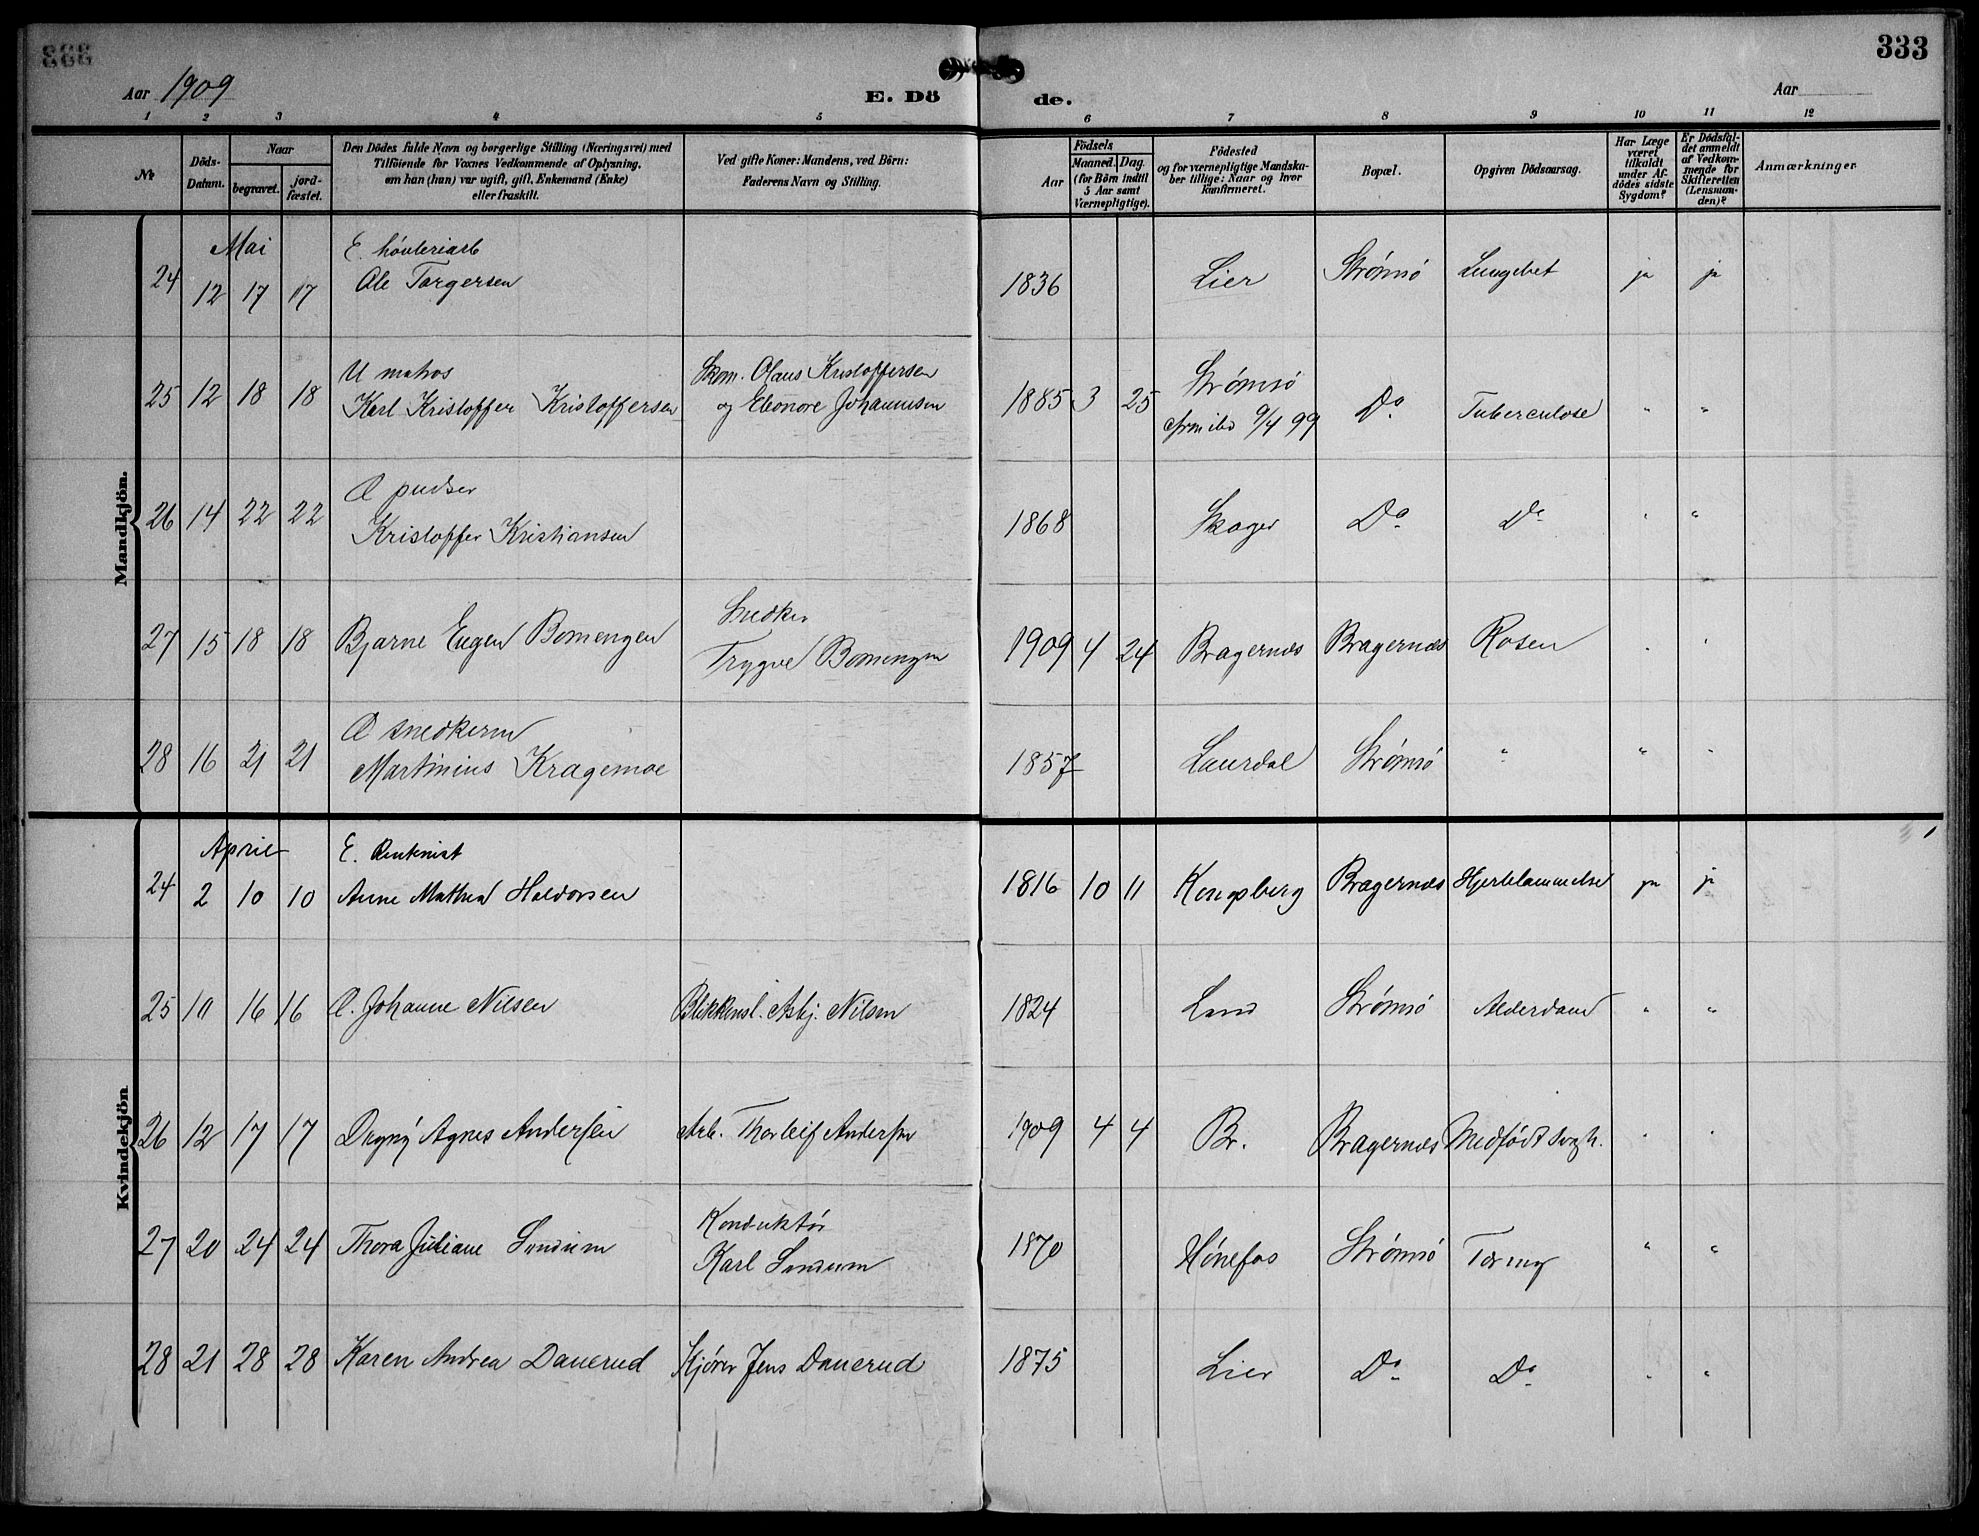 333
Aar 1909
E. Döde.
Aar
1 2 3 4 5 6 7 8 9 10 11 12
No
Döds-Datum.
Naar
begravet.
jord-fæstet.
Den Dödes fulde Navn og borgerlige Stilling (Næringsvei) med
Tilföiende for Voxnes Vedkommende af Oplysning,
om han (hun) var ugift, gift, Enkemand (Enke)
eller fraskilt.
Ved gifte Koner: Mandens, ved Börn:
Faderens Navn og Stilling.
Födsels
Aar
Maaned. Dag.
(for Börn indtil
5 Aar samt
Værnepligtige).
Födested
og for værnepligtige Mandska-
ber tillige: Naar og hvor
konfirmeret.
Bopæl.
Opgiven Dödsaarsag.
Har Læge
været
tilkaldt
under Af-
dödes sidste
Sygdom?
Er Dödsfal-
det anmeldt
af Vedkom-
mende for
Skifteretten
(Lensman-
den)?
Anmærkninger
Mandkjön.
Mai E. høvleriarb
24 12 17 17 Ole Torgersen 1836 Lier Strømsø Lungebet ja ja
U matros Skom. Olaus Kristoffersen Strømsø
25 12 18 18 Karl Kristoffer Kristoffersen og Eleonore Johannesen 1885 3 25 9/4 99 Do Tuberculose " "
Æ pudser
26 14 22 22 Kristoffer Kristiansen 1868 Skoger Do Do " "
Snedker
27 15 18 18 Bjarne Eugen Bomengen Trygve Bomengen 1909 4 24 Bragernæs Bragernæs Rosen " "
Æ snedkerm
28 16 21 21 Martinius Kragemoe 1857 Laurdal Strømsø " " "
Kvindekjön
April E. Rentenist
24 2 10 10 Anne Mathea Haldorsen 1816 10 11 Kongsberg Bragernæs Hjertelammelse ja ja
25 10 16 16 Æ. Johanne Nilsen Blikkensl. Asbj. Nilsen 1824 Land Strømsø Alderdom " "
26 12 17 17 Dagny Agnes Andersen Arb. Thorleif Andersen 1909 4 4 Br. Bragernæs Medfødt svagh. " "
Konduktør
27 20 24 24 Thora Juliane Sundum Karl Sundum 1870 Hønefos Strømsø Tæring " "
28 21 28 28 Karen Andrea Danerud Kjører Jens Danerud 1875 Lier Do Do " "